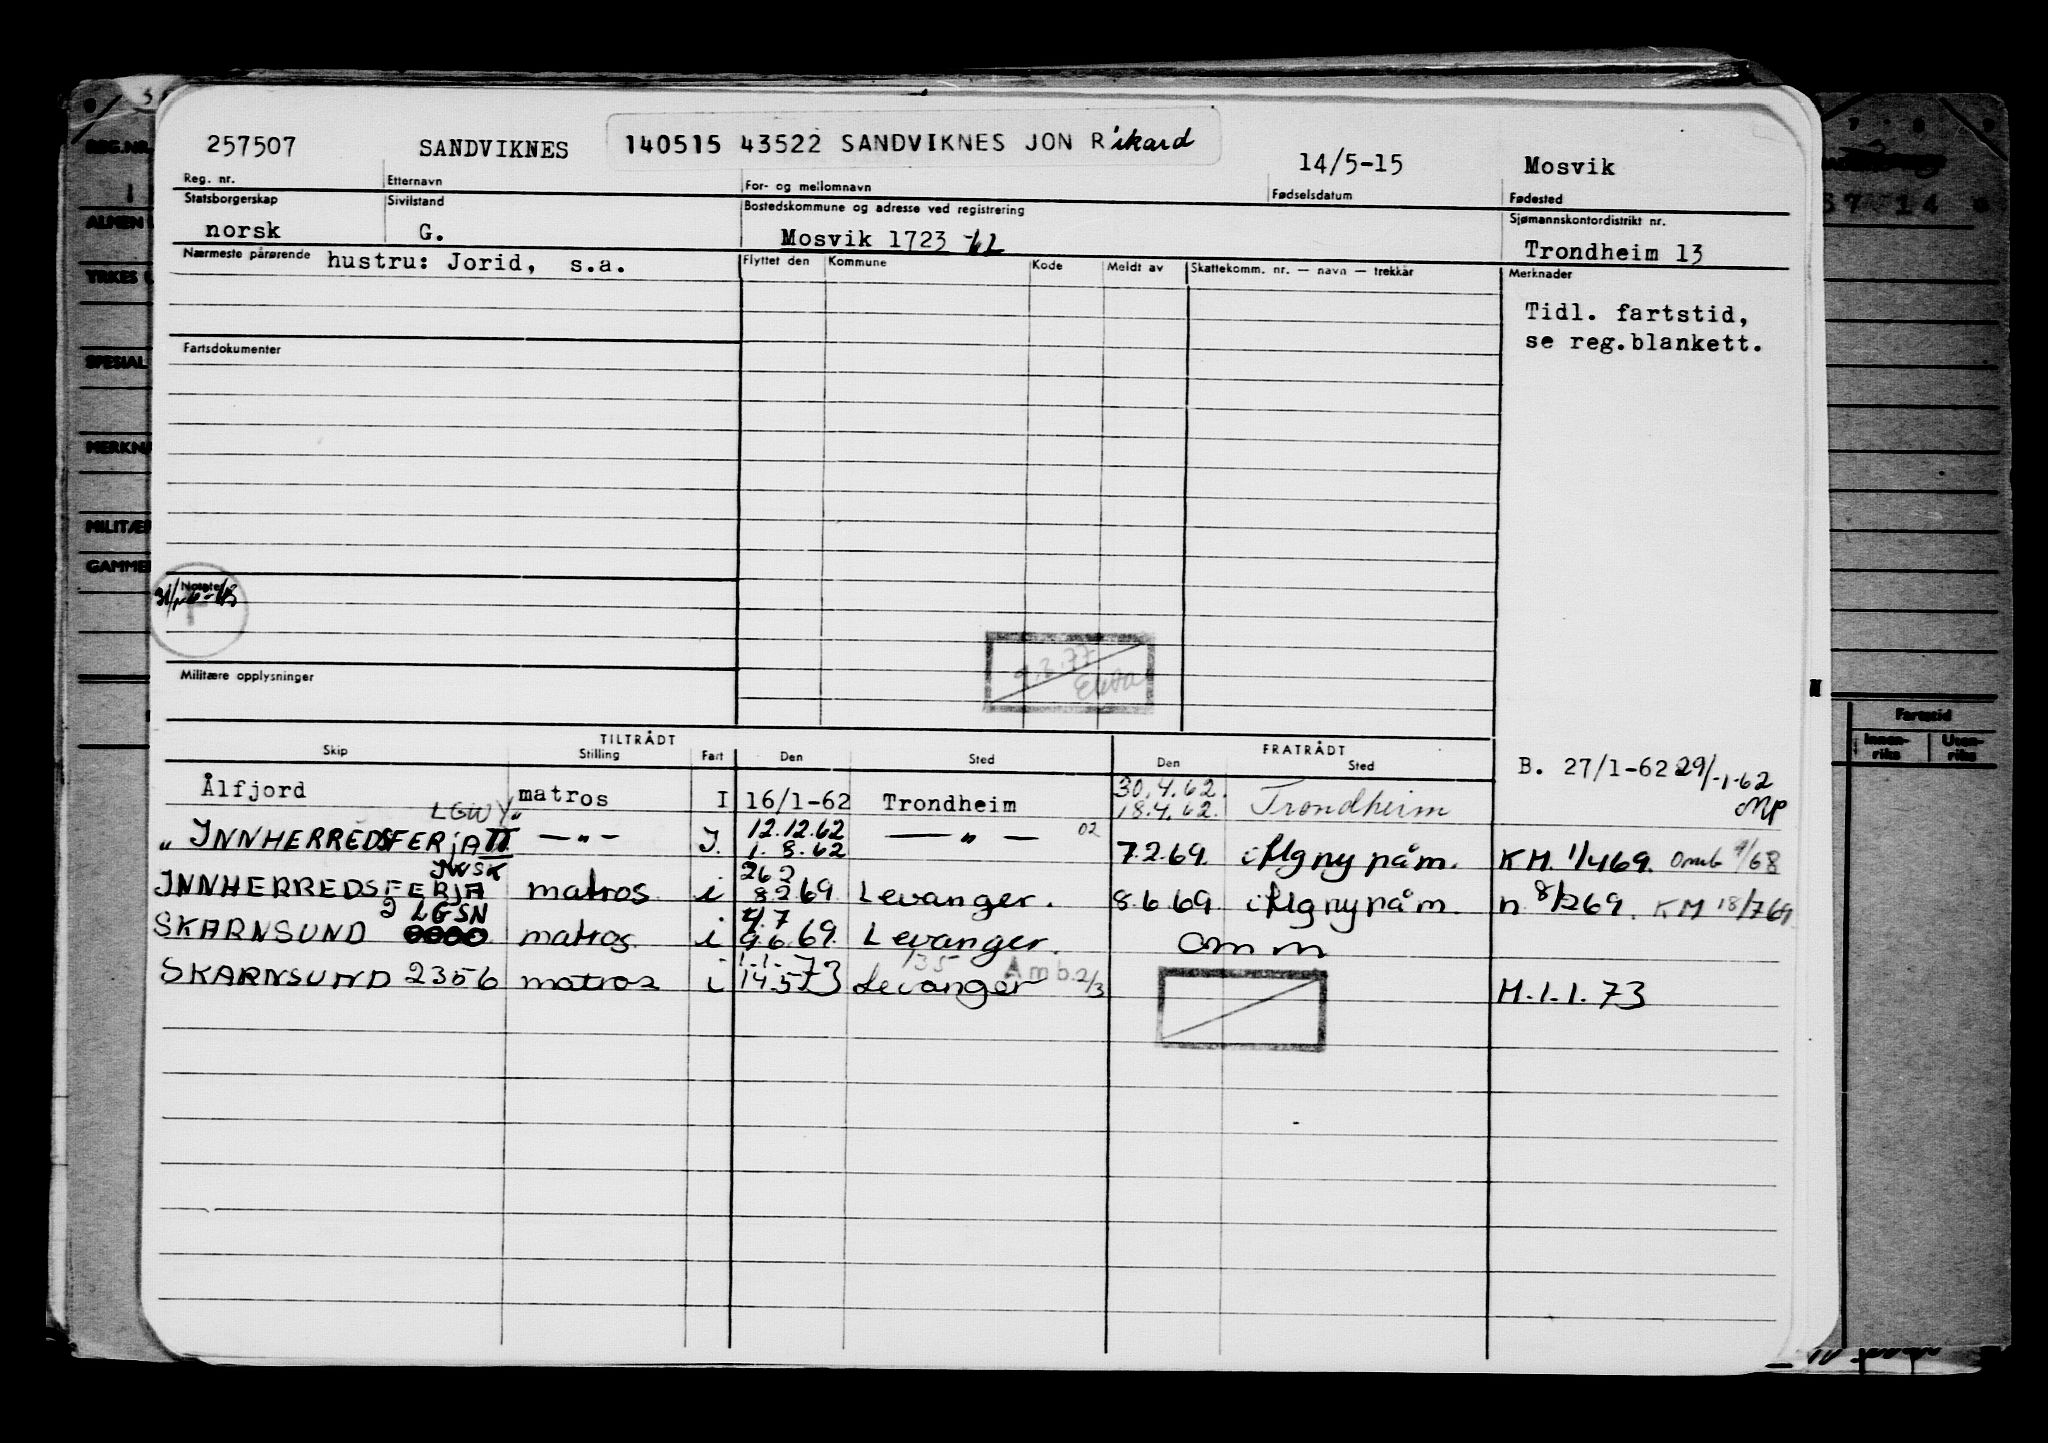 257507 SANDVIKNES 140515 43522 SANDVIKNES JON Rikard 14/5-15 Mosvik
Reg. nr. Etternavn For- og mellomnavn Fødselsdatum Fødested
Statsborgerskap Sivilstand Bostedskommune og adresse ved registrering Sjømannskontordistrikt nr.
norsk G. Mosvik 1723 -62 Trondheim 13
Nærmeste pårørende hustru: Jorid, s.a. Flyttet den Kommune Kode Meldt av Skattekomm. nr. — navn — trekkår Merknader
Tidl. fartstid,
se reg.blankett.
Fartsdokumenter
Notater
Militære opplysninger
TILTRÅDT FRATRÅDT
Skip Stilling Fart Den Sted Den Sted
B. 27/1-62 29/-1-62
MP
Ålfjord matros I 16/1-62 Trondheim 30.4.62. 18.4.62. Trondheim
LGWY
" INNHERREDSFERJA II — " — I. 12.12.62 1.8.62 — " — 02 7.2.69. i Mg ny påm. KM. 1/4 69. Omb 9/68
JWSK
INNHERREDSFERJA matros i 26 2 8.2 69 Levanger. 8.6 69 i Mg ny påm. n 8/2 69. KM 18/7 69.
2 LGSN
SKARNSUND matros i 4.7 9.6.69. Levanger. omm
SKARNSUND 2356 matros i 1.1. 14.5 73 Levanger 135 Amb.2/3 M.1.1.73
REG.NR.
ALMEN
YRKES
SPESIAL
MERKN
MILITÆR
GAMMEL
Fartstid
Innen-riks Uten-riks